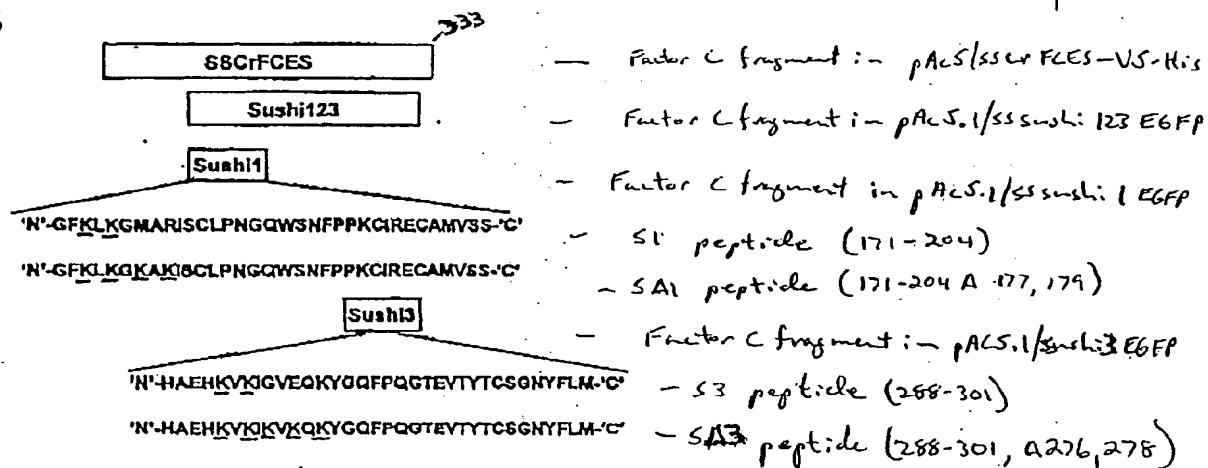 333
SSCrFCES — Factor C fragment in pAc5/sscrFCES-V5-His
Sushi123 - Factor C fragment in pAc5.1/sssushi 123 EGFP
Sushi1 - Factor C fragment in pAc5.1/sssushi 1 EGFP
'N'-GFKLKGMARISCLPNGQWSNFPPKCIRECAMVSS-'C' - S1 peptide (171-204)
'N'-GFKLKGKAKISCLPNGQWSNFPPKCIRECAMVSS-'C' - SA1 peptide (171-204 A 177, 179)
Sushi3 - Factor C fragment in pAC5.1/sushi3 EGFP
'N'-HAEHKVKIGVEQKYGQFPQGTEVTYTCSGNYFLM-'C' - S3 peptide (288-301)
'N'-HAEHKVKIKVKQKYGQFPQGTEVTYTCSGNYFLM-'C' - SA3 peptide (288-301, A276, 278)